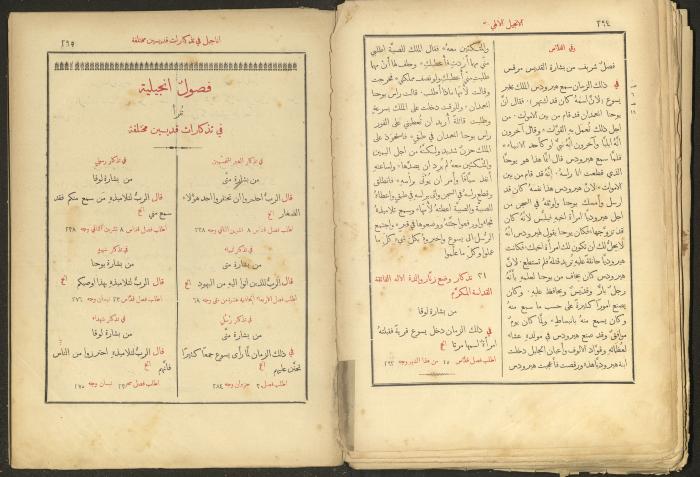 ٢٩٤
الانجيل الالهي
وفي القداس
فصل شريف من بشارة القديس مرقس
في ذلك الزمان سمع هيرودس الملك بخبر
يسوع (لان اسمه كان قد اشتهر) فقال ان
يوحنا المعمدان قد قام من بين الاموات. من
اجل ذلك تُعمل به القوات* وقال آخرون
انه ايليا وآخرون انه نبي او كأحد الانبياء*
فلما سمع هيرودس قال انما هذا هو يوحنا
الذي قطعت انا رأسه. انه قد قام من بين
الاموات* لان هيرودس هذا نفسه كان قد
ارسل وامسك يوحنا واوثقه في السجن من
اجل هيروديا امرأة اخيه فيلبس لانه كان
قد تزوجها فكان يوحنا يقول لهيرودس انه
لا يحل لك ان تكون لك امرأة اخيك. فكانت
هيروديا حانقة عليه تريد قتله فلم تستطع* لان
هيرودس كان يخاف من يوحنا لعلمه بانه
رجل بار وقديس ويحافظ عليه. وكان
يصنع اموراً كثيرة على حسب ما سمع منه
وكان يسمع منه بانبساط* ولما كان يوم
موافق وقد صنع هيرودس في مولده عشاء
لعظمائه وقواد الالوف واعيان الجليل دخلت
ابنة هيروديا هذه ورقصت فأعجبت هيرودس
والمتكئين معه* فقال الملك للصبية اطلبي
مني مهما اردتِ فأعطيكِ* وحلف لها ان مهما
طلبتِ مني أعطيكِ ولو نصف مملكتي* فخرجت
وقالت لأمها ماذا أطلب. فقالت رأس يوحنا
المعمدان* وللوقت دخلت على الملك بسرعة
وطلبت قائلة أريد ان تعطيني على الفور
رأس يوحنا المعمدان في طبق* فاستحوذ على
الملك حزن شديد ولكنه من اجل اليمين
والمتكئين معه لم يرد ان يصدها* ولساعته
أنفذ سيافاً وأمر ان يؤتى برأسه* فانطلق
وقطع رأسه في السجن وأتى برأسه في طبق وأعطاه
للصبية والصبية أعطته لأمها* وسمع تلاميذه
فجاءوا ورفعوا جثته ووضعوها في قبر* واجتمع
الرسل الى يسوع واخبروه بكل شيء وكل ما
عملوا وكل ما علموا
٣١ تذكار وضع زنار والدة الاله الفائقة
القداسة المكرم
من بشارة لوقا
في ذلك الزمان دخل يسوع قرية فقبلته
امرأة اسمها مرتا الخ
اطلب فصل قداس ١٥ من هذا الشهر وجه ٢٩٢
اناجيل في تذكارات قديسين مختلفة
٢٩٥
فصول انجيلية
تُقرأ
في تذكارات قديسين مختلفة
في تذكار العبر المتجسمين
من بشارة متى
قال الرب احذروا ان تحتقروا احد هؤلاء
الصغار الخ
اطلب فصل قداس ٨ تشرين الثاني وجه ٢٣٨
في تذكار انبياء
من بشارة متى
قال الرب للذين اتوا اليه من اليهود الخ
اطلب فصل الاربعاء الحادية عشرة من متى وجه ٦٨
في تذكار رسل
من بشارة متى
في ذلك الزمان لما رأى يسوع جمعاً كثيراً
تحنن عليهم الخ
اطلب فصل ٢ حزيران وجه ٢٨٤
في تذكار رسولي
من بشارة لوقا
قال الرب لتلاميذه من سمع منكم فقد
سمع مني الخ
اطلب فصل قداس ٨ تشرين الثاني وجه ٢٣٨
في تذكار شهيد
من بشارة يوحنا
قال الرب لتلاميذه بهذا اوصيكم الخ
اطلب فصل قداس ٢٣ نيسان وجه ٢٧٦
في تذكار شهداء
من بشارة لوقا
قال الرب لتلاميذه احترزوا من الناس
فانهم الخ
اطلب فصل سحر ٢٣ نيسان وجه ١٧٥